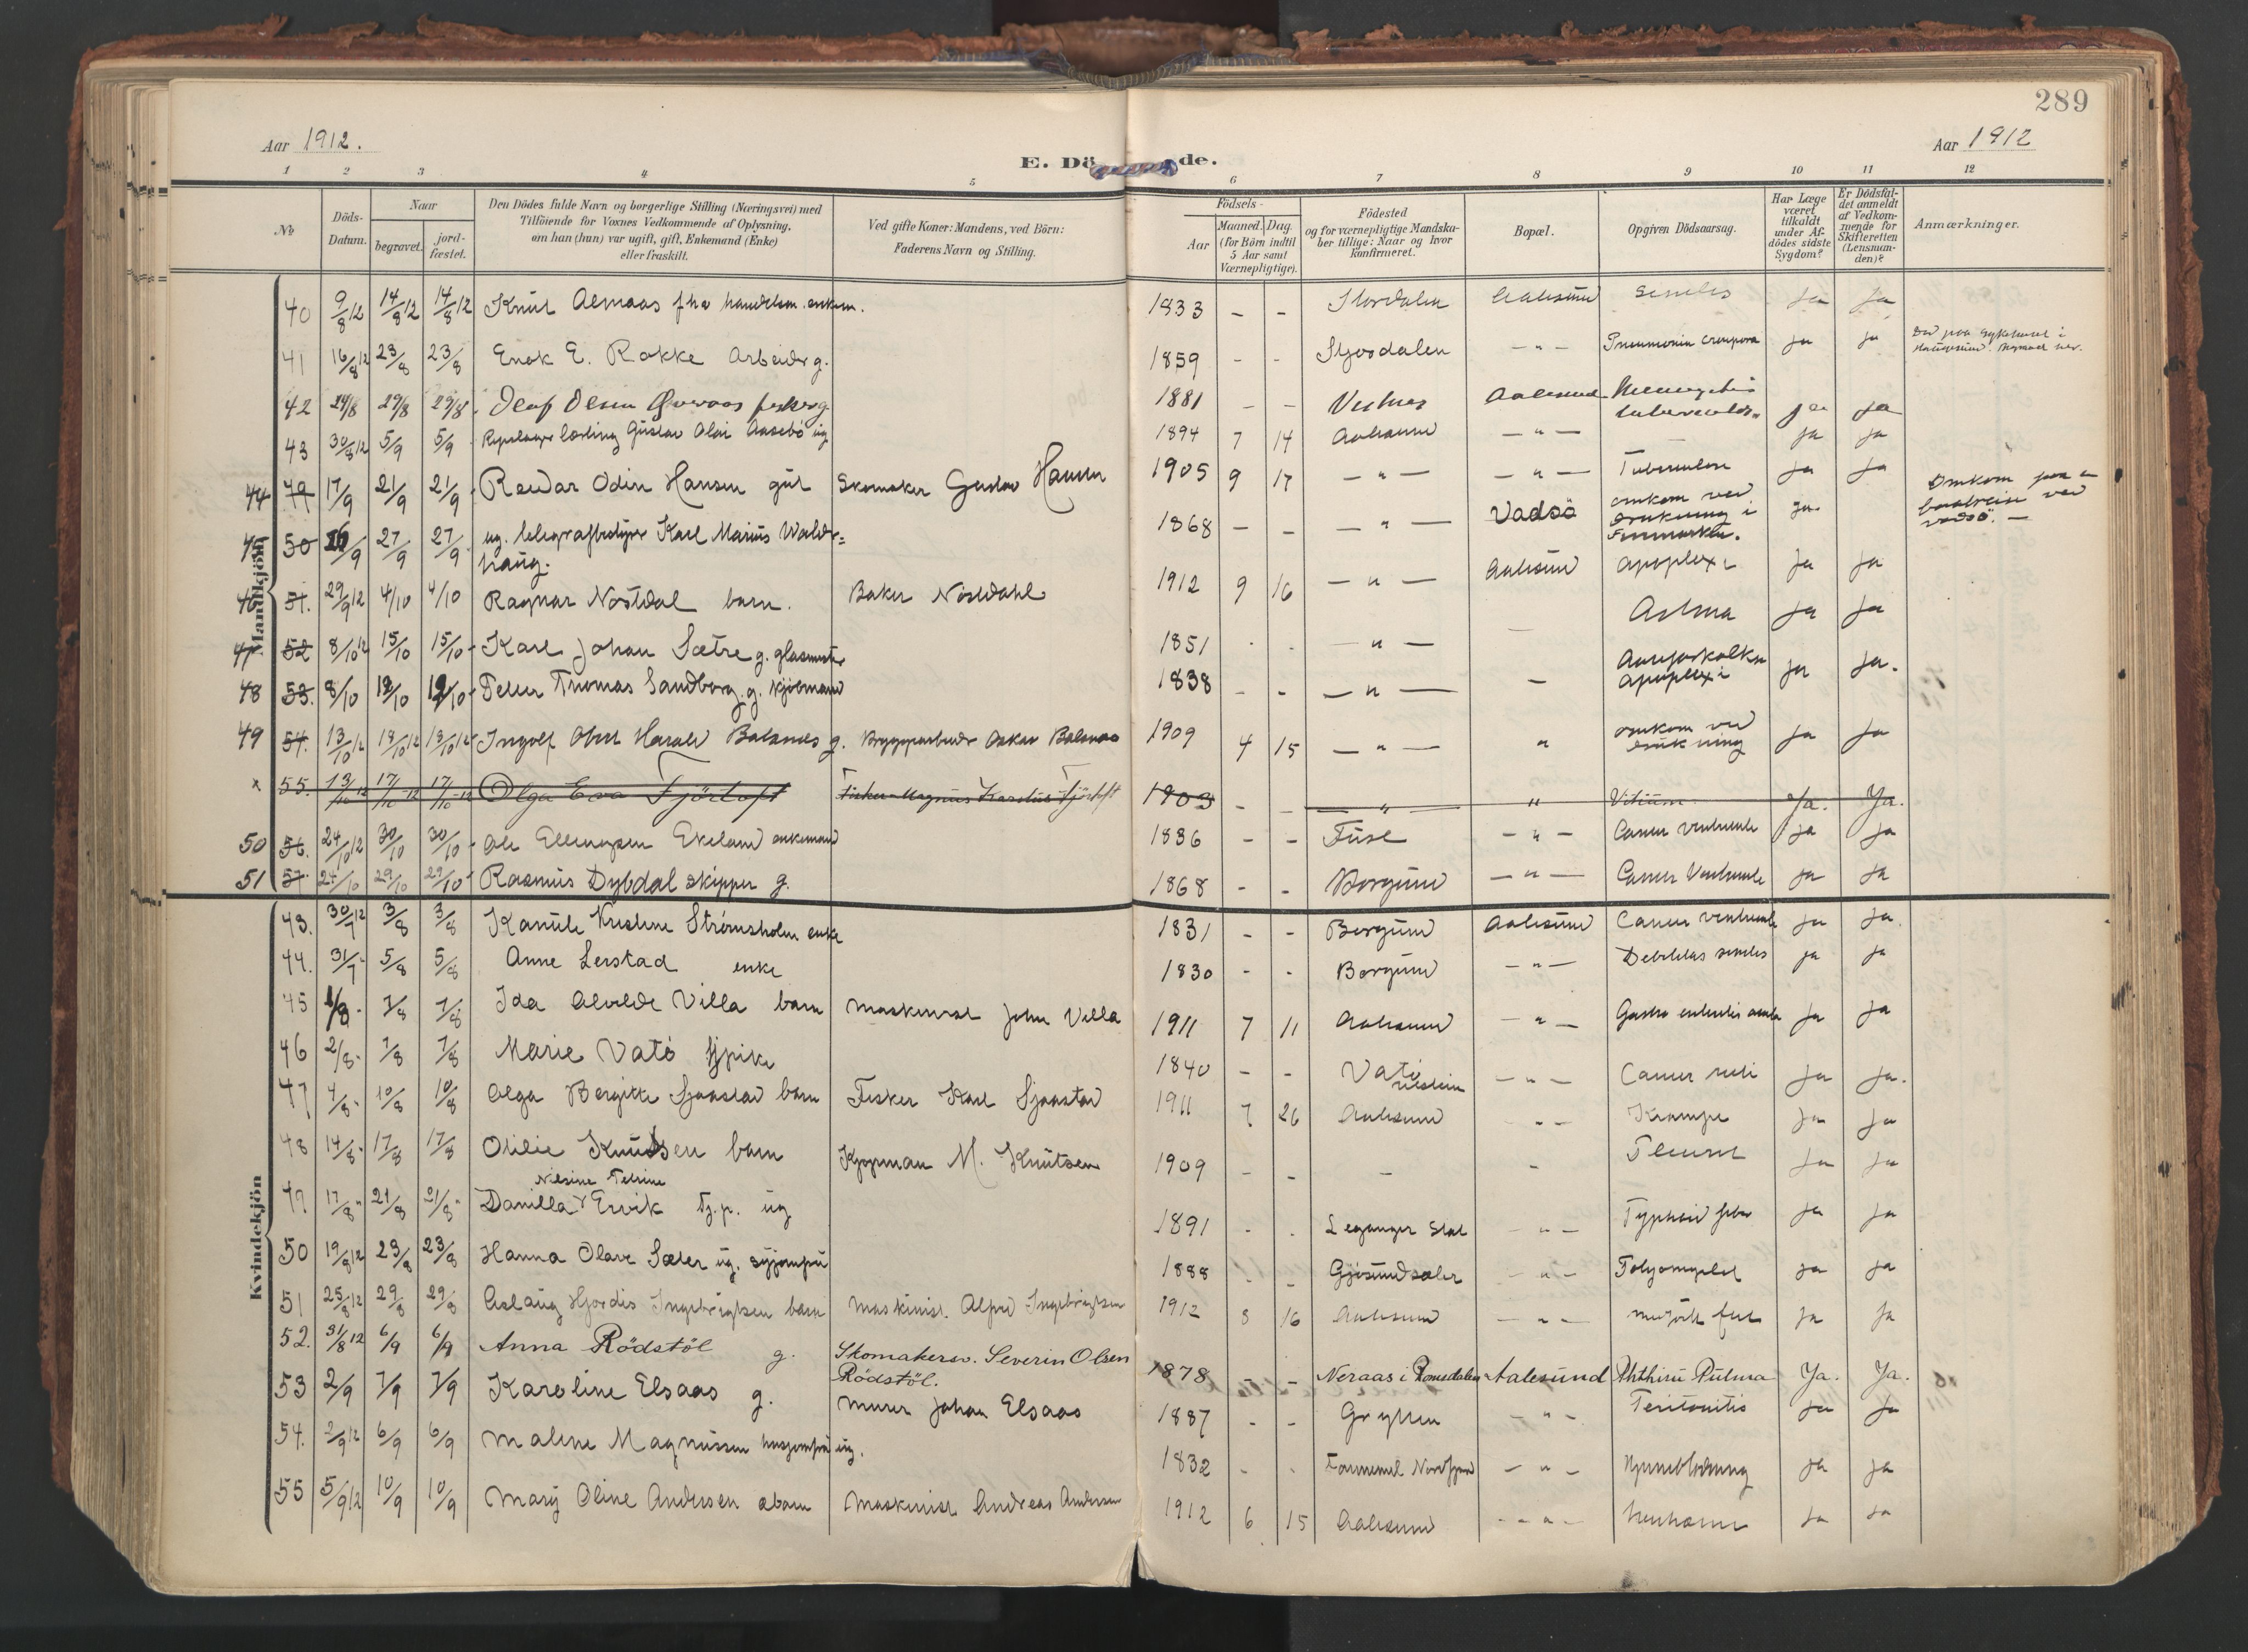 289
Aar 1912.
Aar 1912
E. Dö de.
1 2 3 4 5 6 7 8 9 10 11 12
No
Döds-Datum.
Naar
begravet.
jord-fæstet.
Den Dödes fulde Navn og borgerlige Stilling (Næringsvei) med
Tilföiende for Voxnes Vedkommende af Oplysning,
om han (hun) var ugift, gift, Enkemand (Enke)
eller fraskilt.
Ved gifte Koner: Mandens, ved Börn:
Faderens Navn og Stilling.
Födsels-
Aar
Maaned. Dag.
(for Börn indtil
5 Aar samt
Værnepligtige).
Födested
og for værnepligtige Mandska-
ber tillige: Naar og hvor
konfirmeret.
Bopæl.
Opgiven Dödsaarsag.
Har Læge
været
tilkaldt
under Af-
dödes sidste
Sygdom?
Er Dödsfal-
det anmeldt
af Vedkom-
mende for
Skifteretten
(Lensman-
den)?
Anmærkninger.
Mandkjön
40 9/8 12 14/8 12 14/8 12 Knut Almaas fhv handelsm. enkem. 1833 - - Stordalen Aalesund senilis Ja Ja
41 16/8 12 23/8 23/8 Enok E. Rokke Arbeider g. 1859 - - Stjosdalen -"- Pneumonia crouposa Ja Ja Død paa Sykehuset i
Haugesund.
42 24/8 29/8 29/8 Olaf Olsen fisker g. 1881 - - Vestnes Aalesund Ja Ja
43 30/8 12 5/9 5/9 lærling Gustav Olai Aasebö ug 1894 7 14 Aalesund -"- Ja Ja
44 49 17/9 21/9 21/9 Reidar Odin Hansen gut Skomaker Gustav Hansen 1905 9 17 -"- -"- Tuberkulose Ja Ja
45 50 16/9 27/9 27/9 ug. telegrafbestyrer Karl Marius Walder=
haug. 1868 - - -"- Vadsö omkom ved
drukning i
Finmarken. Ja. Omkom paa
baatreise ved
Vadsö. -
46 51. 29/9 12 4/10 4/10 Ragnar Nöstdal barn. Baker Nöstdahl 1912 9 16 -"- Aalesund Apoplexi Ja Ja
47 52 8/10 12 15/10 15/10 Karl Johan Sætre g. glasmester 1851 - - -"- - Astma Ja Ja
48 53. 8/10 12/10 12/10 Peter Thomas Sandborg. g. kjöbmand 1838 - - -"- - Aareforkalkn
apoplexi Ja Ja.
49 54. 13/10 12 18/10 12 18/10 12 Ingolf Harald Balsnes g. Bryggearbeider Oskar Balsnes 1909 4 15 -"- " omkom ved
drukning Ja Ja
x 55. 13/10 12 17/10 12 17/10 12 Olga Eva Fjörtoft Fisker Magnus Karolius Fjörtoft 1903 - - " " Vitium. Ja. Ja.
50 56. 24/10 12 30/10 30/10 Ole Ellingsen Ekeland enkemand 1836 - - Fuse -"- Cancer ventricule Ja Ja
51 57 24/10 29/10 29/10 Rasmus Dybdal skipper g. 1868 - - Borgund -"- Cancer Ventricule Ja Ja
Kvindekjön
43. 30/7 12 3/8 3/8 Kristine Strömsholm enke 1831 - - Borgund Aalesund Cancer ventricule Ja Ja
44. 31/7 5/8 5/8 Anne Lerstad enke 1830 - - Borgund -"- Debilitas senilis Ja Ja
45 1/8 7/8 7/8 Ida Alvilde Villa barn Maskinist John Villa 1911 7 11 Aalesund -"- Gastro enteritis acuta Ja Ja
46 2/8 7/8 7/8 Marie Vatö tjpike 1840 - - Vatö -"- Cancer Ja Ja.
47 4/8 10/8 10/8 Olga Bergitte Sjaastad barn Fisker Karl Sjaastad 1911 7 26 Aalesund -"- Krampe Ja Ja
48 14/8 17/8 17/8 Otilie Knudsen barn Kjöpman M. Knutsen 1909 - - - - Ja Ja
49 17/8 21/8 21/8 Danilla Nilsine Petrine Ervik tj.p. ug 1891 - - Leganger Stat -"- Typhoid feber Ja Ja
50 19/8 12 23/8 23/8 Hanna Olave Sæter ug. syjomfru 1888 - - Gjösundsæter -"- Ja Ja
51 25/8 12 29/8 29/8 Aslaug Hjordis Ingebrigtsen barn Maskinist. Alfred Ingebrigtsen 1912 8 16 Aalesund -"- Ja Ja
52. 31/8 12 6/9 6/9 Anna Rödstöl g. Skomakersv. Severin Olsen
Rödstöl. 1878 - - Neraas i Romsdalen Aalesund Phthisis Pulma Ja. Ja.
53 2/9 7/9 7/9 Karoline Elsaas g. Murer Johan Elsaas 1887 - - Grytten -"- Peritonitis Ja Ja
54. 2/9 12 6/9 6/9 Maline Magnussen husjomfru ug. 1832 - - Nordfjord -"- Hjerneblödning Ja Ja
55 5/9 12 10/9 10/9 Mary Oline Andersen barn Maskinist Andreas Andersen 1912 6 15 Aalesund -"- Ja Ja